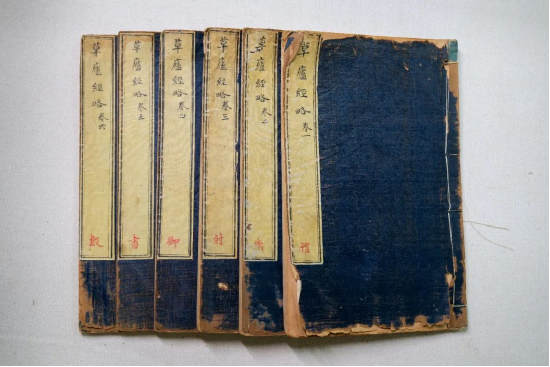 草廬經略卷一
禮
草廬經略卷二
樂
草廬經略卷三
射
草廬經略卷四
御
草廬經略卷五
書
草廬經略卷六
數